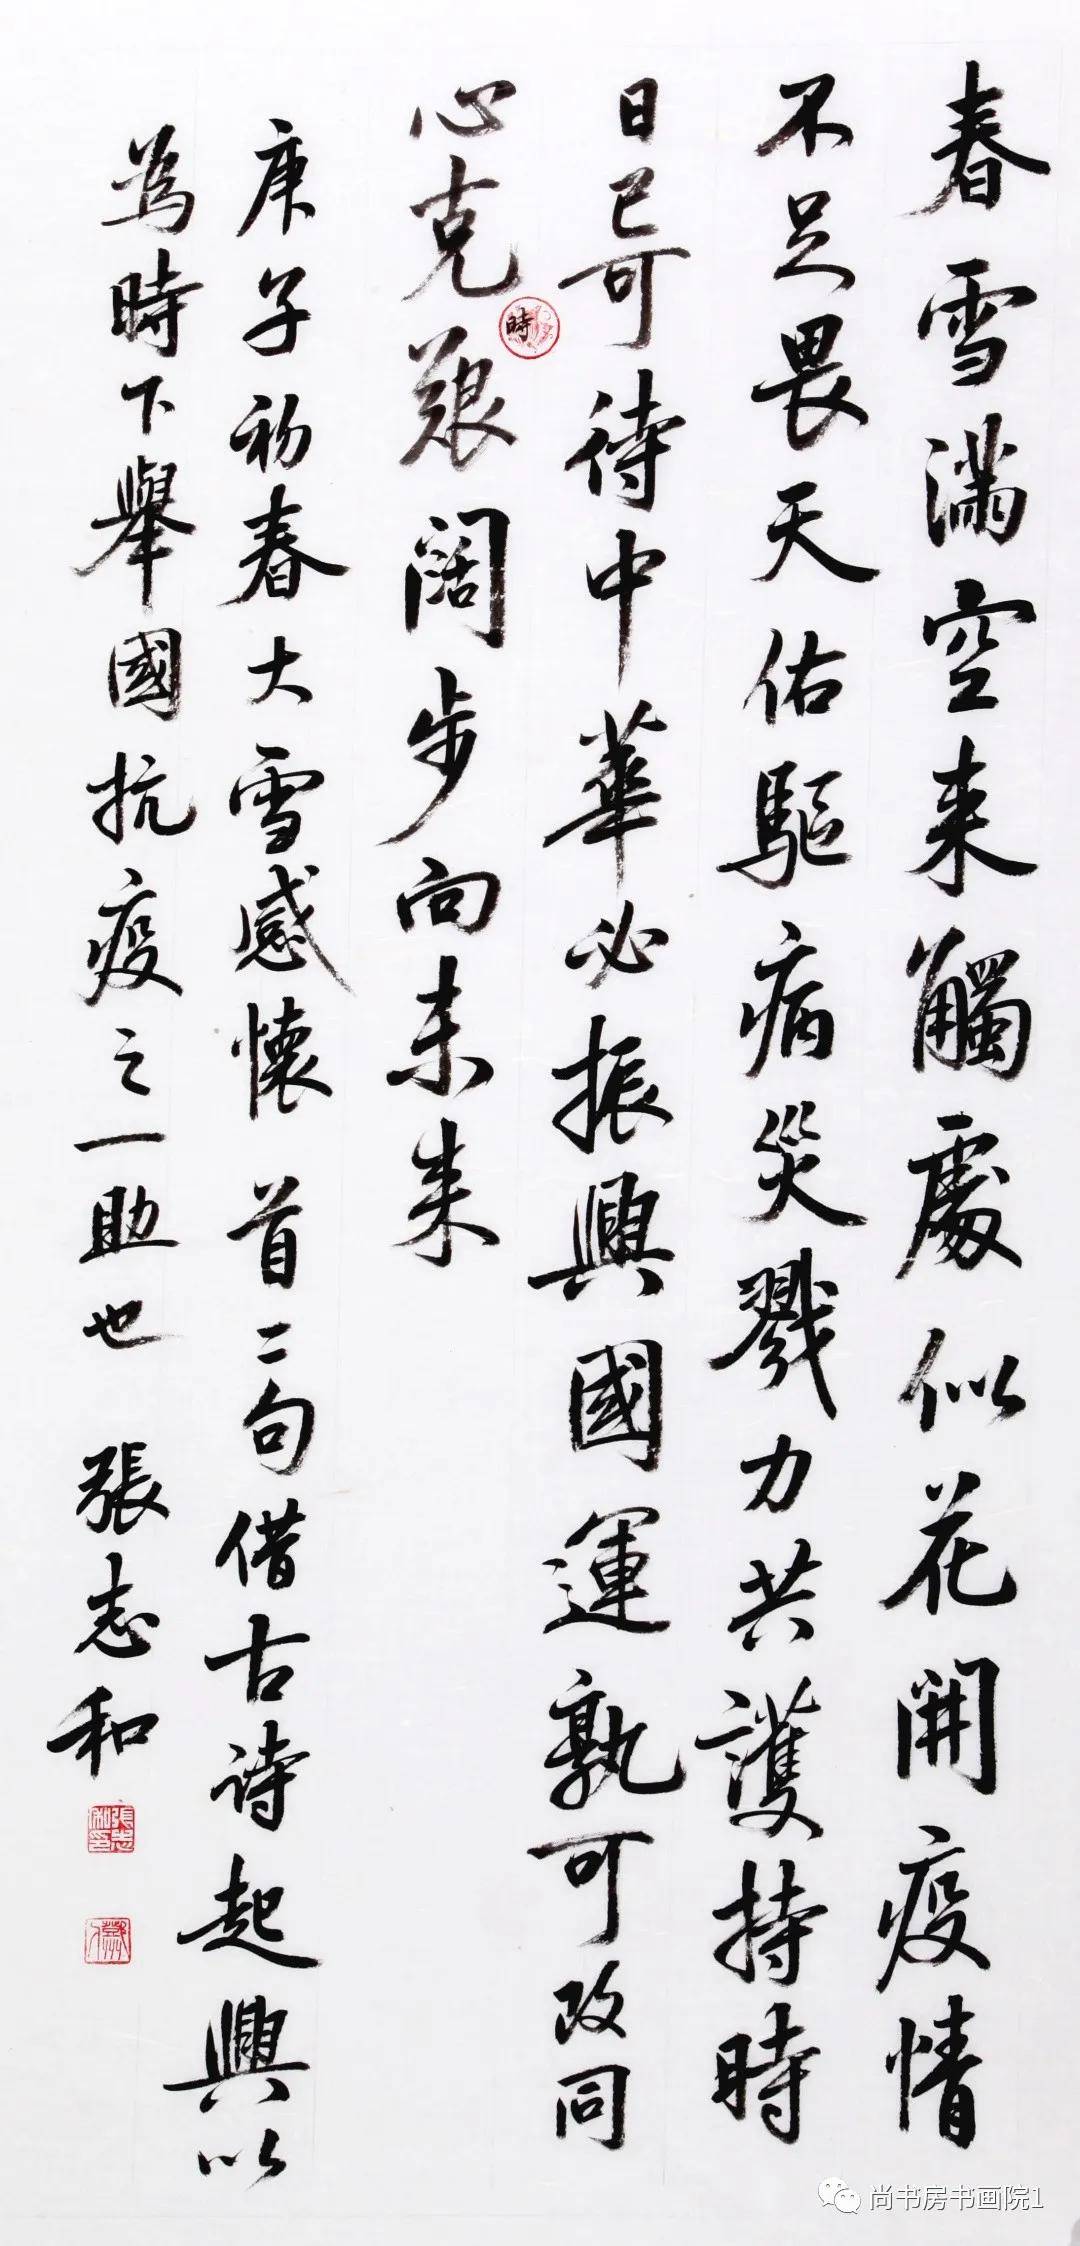 春雪滿空来觸處似花開疫情
不足畏天佑驅病災戮力共護持時
日已可待中華必振興國運孰可改同
心克艱阔步向未来
時
庚子初春大雪感懷 首二句借古詩起興以
為時下舉國抗疫之一助也 張志和
尚书房书画院1